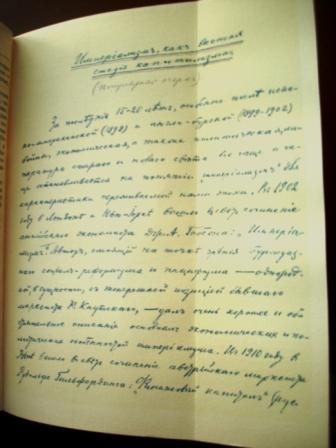 Имперіализмъ, какъ высшая
стадія капитализма
(популярный очеркъ)
За послѣднія 15-20 лѣтъ, особенно послѣ испано-
американской (1898) и англо-бурской (1899-1902)
войны, экономическая, а также политическая, ли-
тература стараго и новаго свѣта все чаще и ча-
ще останавливается на понятіи „имперіализмъ" для
характеристики переживаемой нами эпохи. Въ 1902
году въ Лондонѣ и Нью-Іоркѣ вышло въ свѣтъ сочиненіе
англійскаго экономиста Дж. А. Гобсона: „Имперіа-
лизмъ". Авторъ, стоящій на точкѣ зрѣнія буржуаз-
наго соціалъ-реформизма и пацифизма — однород-
ной, въ сущности, съ теперешней позиціей бывшаго
марксиста К. Каутскаго, — далъ очень хорошее и об-
описаніе основныхъ экономическихъ и по-
литическихъ особенностей имперіализма. Въ 1910 году въ
Вѣнѣ вышло въ свѣтъ сочиненіе австрійскаго марксиста
Рудольфа Гильфердинга: „Финансовый капиталъ" (рус-